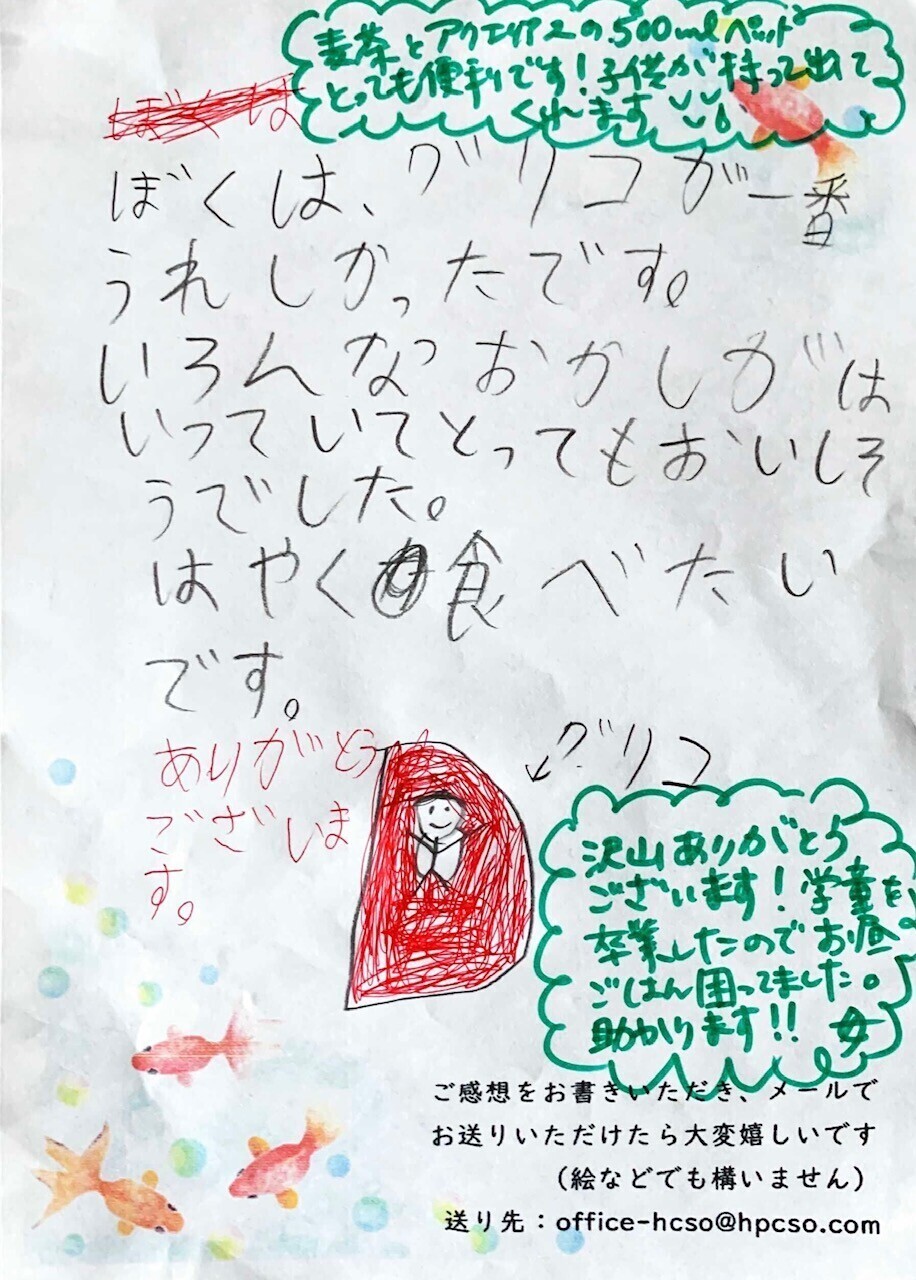 麦茶とアクエリアスの500mlペット
とっても便利です！子供が持って出て
くれます
ぼくは
ぼくは、グリコが一番
うれしかったです。
いろんなっおかしがは
いっていてとってもおいしそ
うでした。
はやく食べたい
です。
ありがとう
ございま
す。
グリコ
沢山ありがとう
ございます！学童を
卒業したのでお昼
ごはん困ってました。
助かります!!
ご感想をお書きいただき、メールで
お送りいただけたら大変嬉しいです
（絵などでも構いません）
送り先：office-hcso@hpcso.com